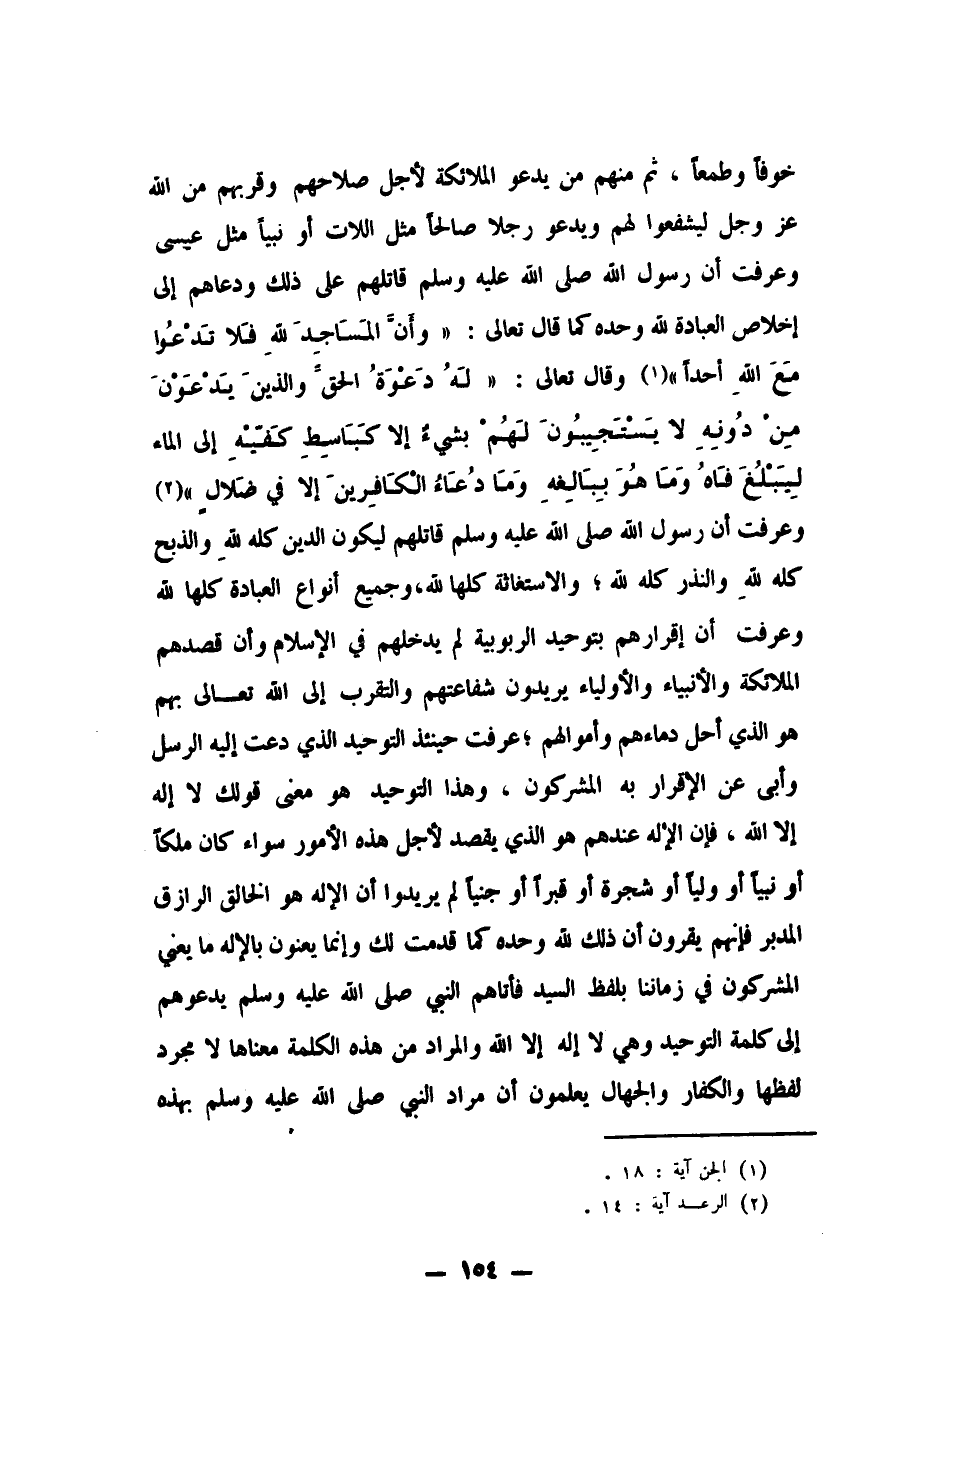 خوفاً وطمعاً ، ثم منهم من يدعو الملائكة لأجل صلاحهم وقربهم من الله
عز وجل ليشفعوا لهم ويدعو رجلا صالحاً مثل اللات أو نبياً مثل عيسى
وعرفت أن رسول الله صلى الله عليه وسلم قاتلهم على ذلك ودعاهم إلى
إخلاص العبادة لله وحده كما قال تعالى : « وأَنَّ المَسَاجِدَ للهِ فَلا تَدْعُوا
مَعَ اللهِ أحداً »(١) وقال تعالى : « لَهُ دَعْوَةُ الحق والذينَ يَدْعَوْنَ
مِنْ دُونِهِ لا يَسْتَجِيبُونَ لَهُمْ بشيءٌ إلا كَبَاسِطِ كَفَّيْهِ إلى الماء
لِيَبْلُغَ فَاهُ وَمَا هُوَ بِبَالِغِهِ وَمَا دُعَاءُ الْكَافِرِينَ إلا في ضَلالٍ »(٢)
وعرفت أن رسول الله صلى الله عليه وسلم قاتلهم ليكون الدين كله للهِ والذبح
كله للهِ والنذر كله لله ؛ والاستغاثة كلها لله،وجميع أنواع العبادة كلها لله
وعرفت أن إقرارهم بتوحيد الربوبية لم يدخلهم في الإسلام وأن قصدهم
الملائكة والأنبياء والأولياء يريدون شفاعتهم والتقرب إلى الله تعـــالى بهم
هو الذي أحل دماءهم وأموالهم ؛عرفت حينئذ التوحيد الذي دعت إليه الرسل
وأبى عن الإقرار به المشركون ، وهذا التوحيد هو معنى قولك لا إله
إلا الله ، فإن الإله عندهم هو الذي يقصد لأجل هذه الأمور سواء كان ملكاً
أو نبياً أو ولياً أو شجرة أو قبراً أو جنياً لم يريدوا أن الإله هو الخالق الرازق
المدبر فإنهم يقرون أن ذلك لله وحده كما قدمت لك وإنما يعنون بالإله ما يعني
المشركون في زماننا بلفظ السيد فأتاهم النبي صلى الله عليه وسلم يدعوهم
إلى كلمة التوحيد وهي لا إله إلا الله والمراد من هذه الكلمة معناها لا مجرد
لفظها والكفار والجهال يعلمون أن مراد النبي صلى الله عليه وسلم بهذه
(١) الجن آية : ١٨ .
(٢) الرعـــد آية : ١٤ .
— ١٥٤ —